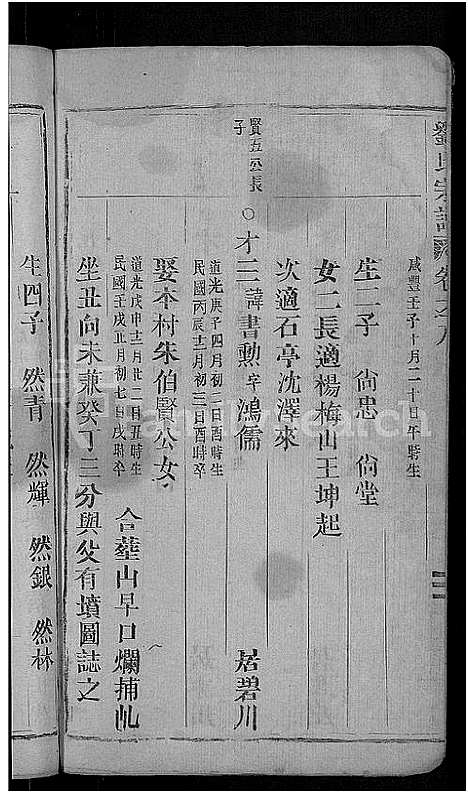 劉氏宗譜 卷之八
咸豐壬子十月二十日午時生
生二子 尙忠 尙堂
女二長適楊梅山王坤起
次適石亭沈澤來
賢五公長子
○才三 諱書勳字鴻儒 居碧川
道光庚子四月初二日酉時生
民國丙辰十二月初三日酉時卒
娶本村朱伯賢公女
道光戊申十二月廿二日丑時生
民國壬戌正月初七日戌時卒
合塟山早口爛捕虬
坐丑向未兼癸丁三分與父有墳圖誌之
生四子 然青 然輝 然銀 然林
FamilySearch